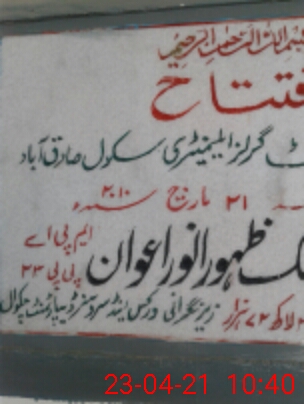 بسم اللہ الرحمن الرحیم
افتتاح
گرلز ایلیمنٹری سکول صادق آباد
۲۱ مارچ سنہ ۲۰۱۰ء
ظہور انور اعوان ایم پی اے پی پی ۲۳
لاکھ ۷۲ ہزار زیر نگرانی ورکس اینڈ سروسز ڈیپارٹمنٹ چکوال
23-04-21 10:40